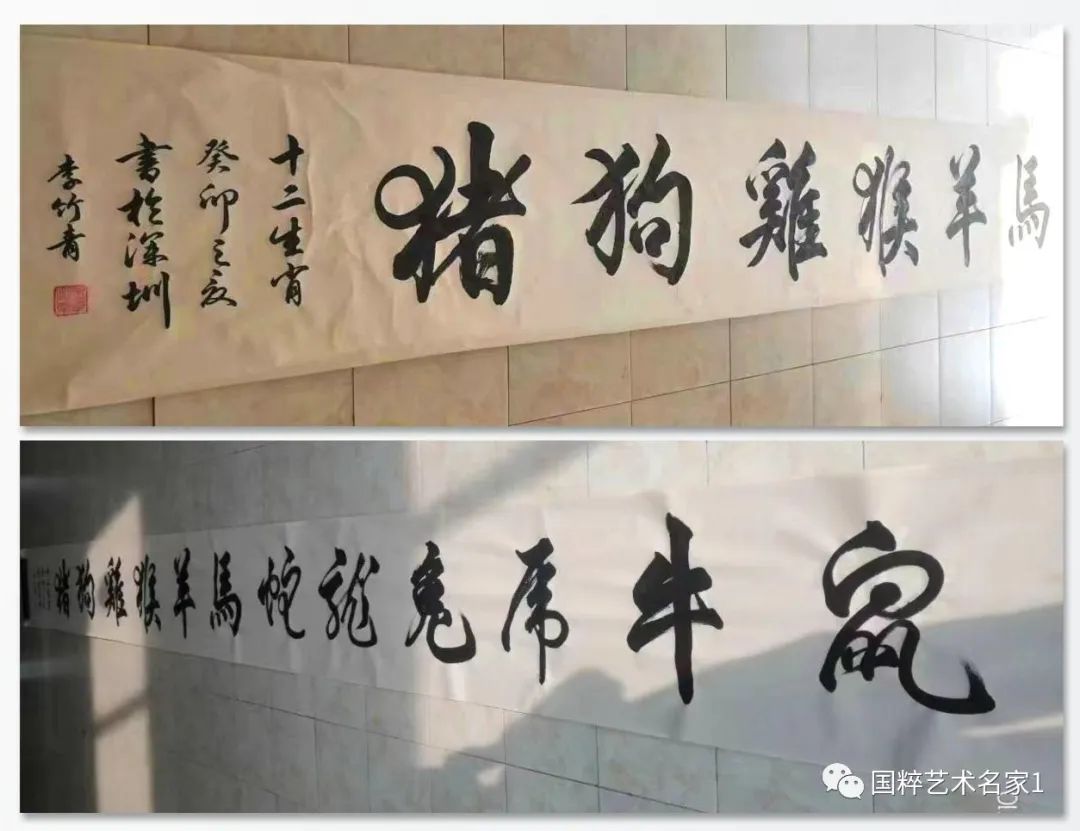 馬羊猴雞狗猪
十二生肖
癸卯之夏
書於深圳
李竹青
鼠牛虎兔龍蛇馬羊猴雞狗猪
国粹艺术名家1